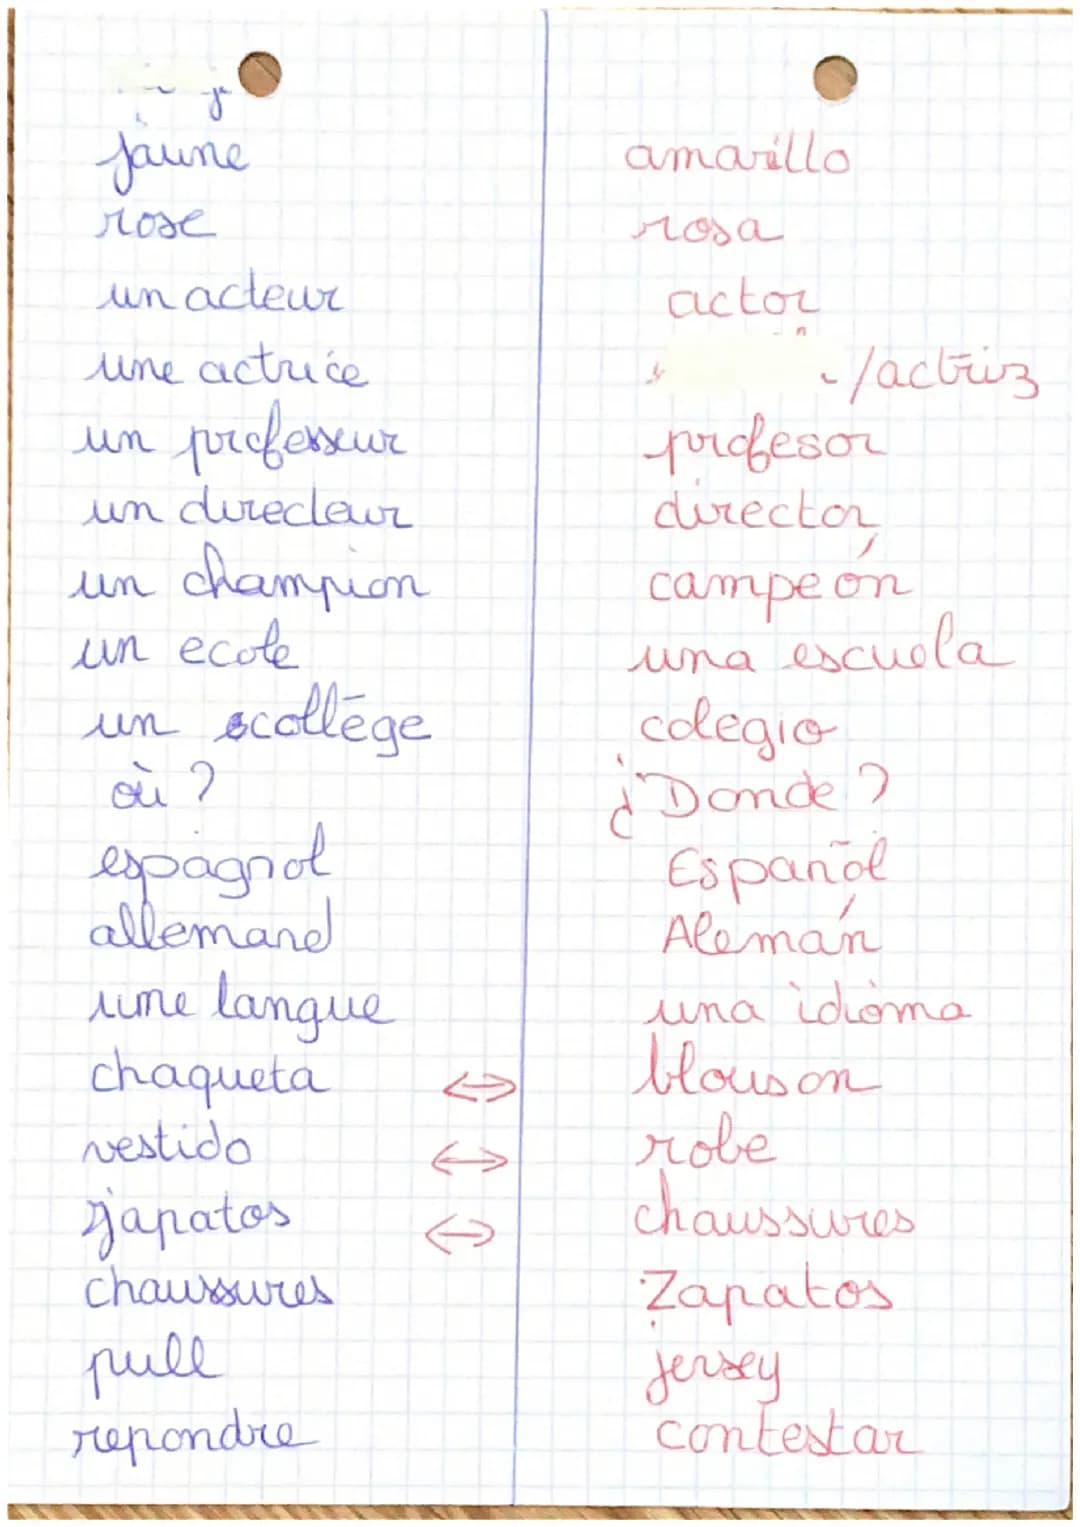 jaune amarillo
rose rosa
un acteur actor
une actrice /actriz
un professeur profesor
un directeur director
un champion campeón
un ecole una escuela
un collège colegio
où ? ¿Donde ?
espagnol Español
allemand Alemán
une langue una idioma
chaqueta ⇔ blouson
vestido ⇔ robe
zapatos ⇔ chaussures
chaussures Zapatos
pull jersey
repondre contestar